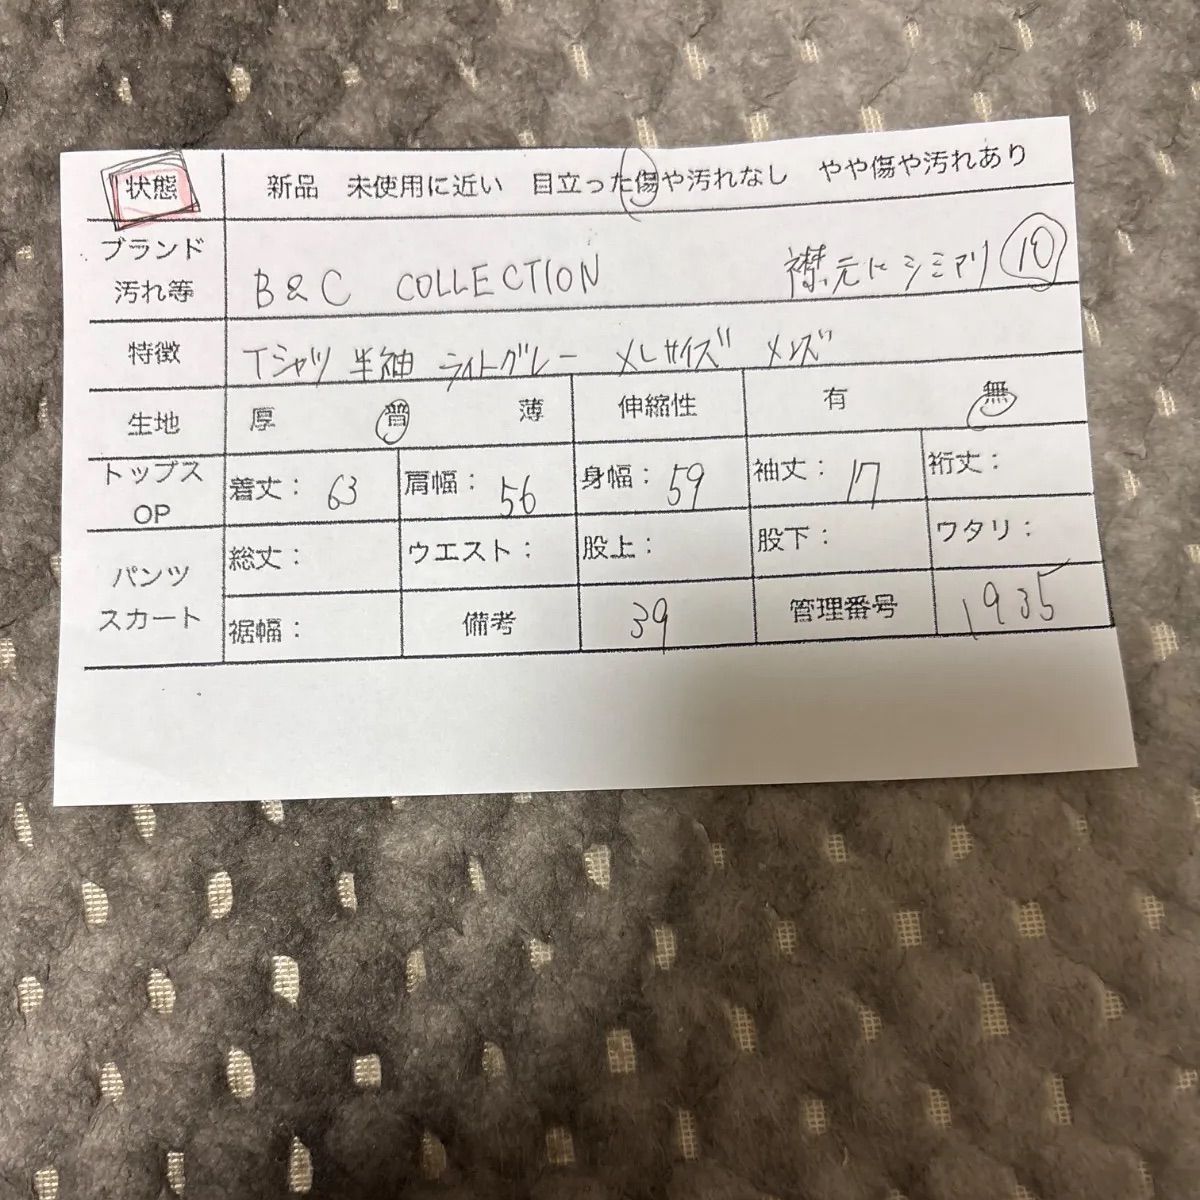 状態 新品 未使用に近い 目立った傷や汚れなし やや傷や汚れあり
ブランド
汚れ等 B&C COLLECTION 襟元にシミアリ 10
特徴 Tシャツ 半袖 ライトグレー XLサイズ メンズ
生地 厚 普 薄 伸縮性 有 無
トップス
OP 着丈: 63 肩幅: 56 身幅: 59 袖丈: 17 裄丈:
パンツ
スカート 総丈: ウエスト: 股上: 股下: ワタリ:
裾幅: 備考 39 管理番号 1935